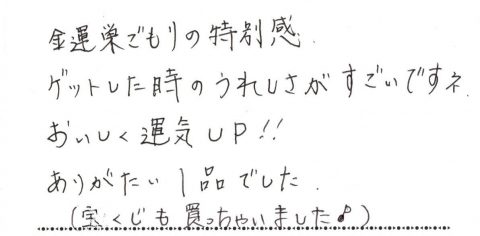 金運巣ごもりの特別感.
ゲットした時のうれしさがすごいですネ.
おいしく運気UP!!
ありがたい1品でした.
(宝くじも買っちゃいました♪)